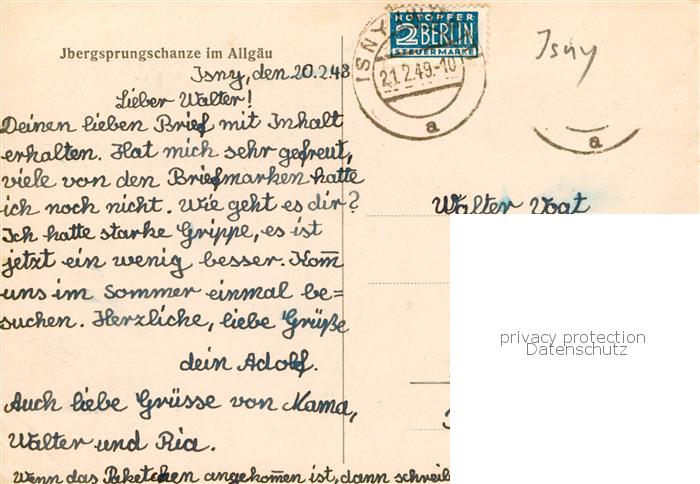 Jbergsprungschanze im Allgäu
Isny, den 20.2.48
Lieber Walter!
Deinen lieben Brief mit Inhalt
erhalten. Hat mich sehr gefreut,
viele von den Briefmarken hatte
ich noch nicht. Wie geht es dir?
Ich hatte starke Grippe, es ist
jetzt ein wenig besser. Kom̅
uns im Sommer einmal be=
suchen. Herzliche, liebe Grüße
dein Adolf.
Auch liebe Grüsse von Mama,
Walter und Ria.
Wenn das Paketchen angekom̅en ist, dann schreib
NOTOPFER
2 BERLIN
STEUERMARKE
ISNY
21.2.49.-10
a
Isny
a
Walter Vogt
privacy protection
Datenschutz